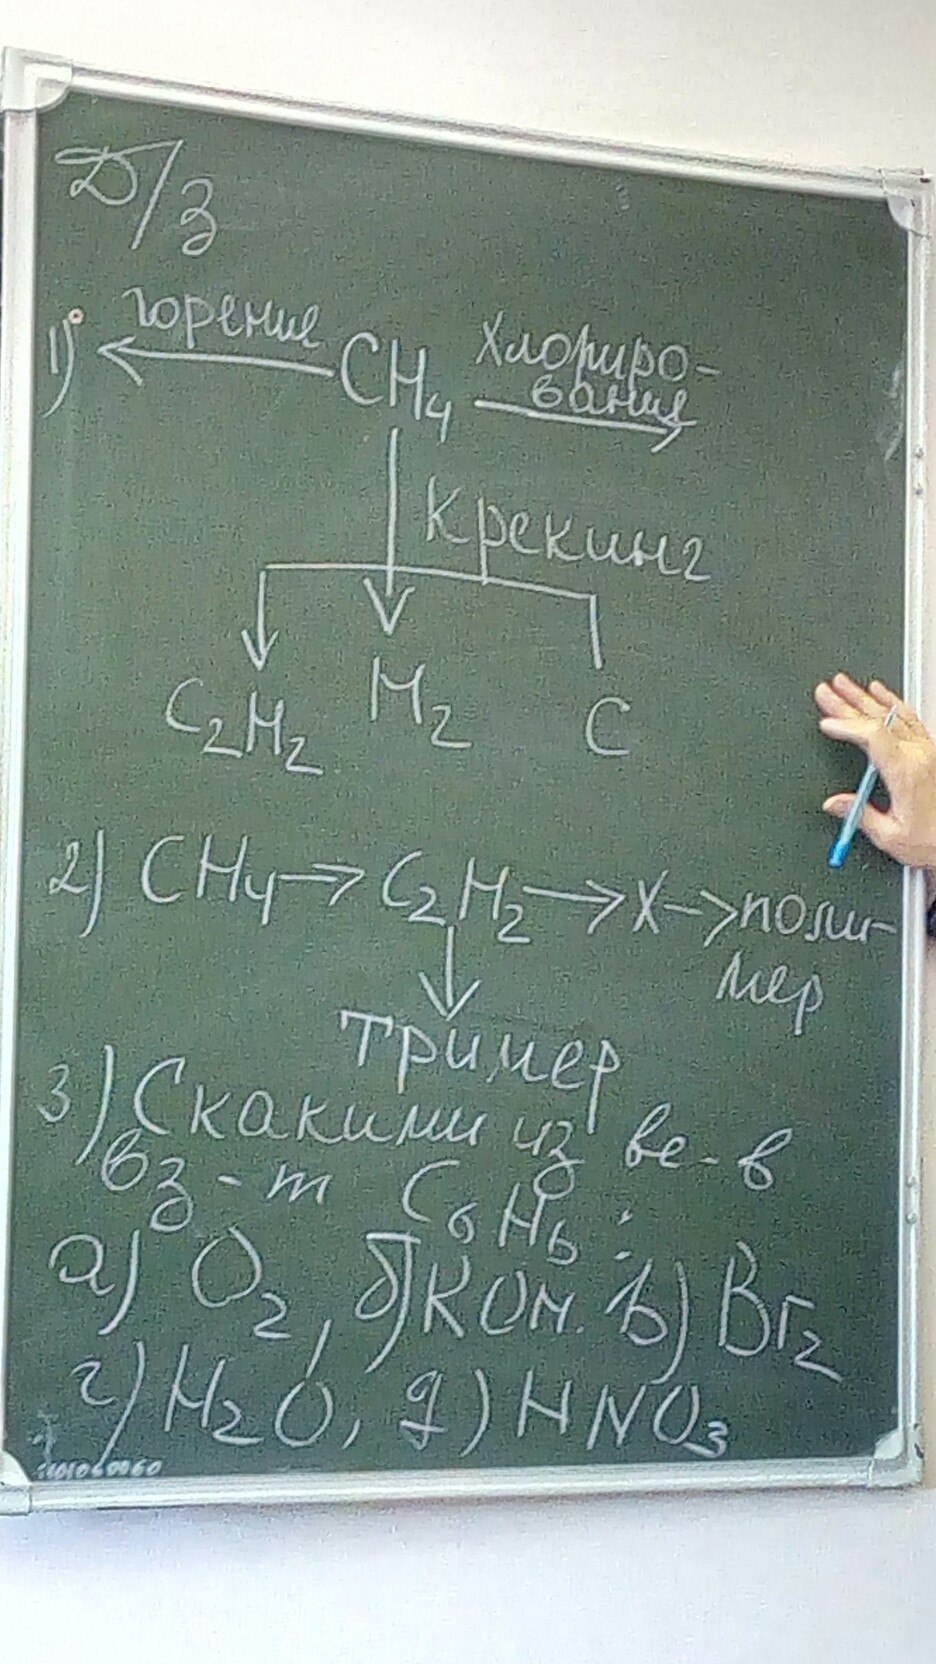 Д/З
1) горение CH4 хлориро-
вание
Крекинг
C2H2 H2 C
2) CH4 → C2H2 → X → поли-
мер
тример
3) С какими из ве-в
вз-т C6H6:
а) O2, б) KOH. в) Br2
г) H2O, д) HNO3